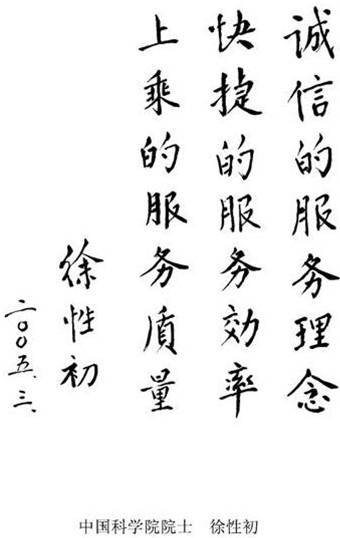 诚信的服务理念
快捷的服务効率
上乘的服务质量
徐性初
二〇〇五.三.
中国科学院院士 徐性初